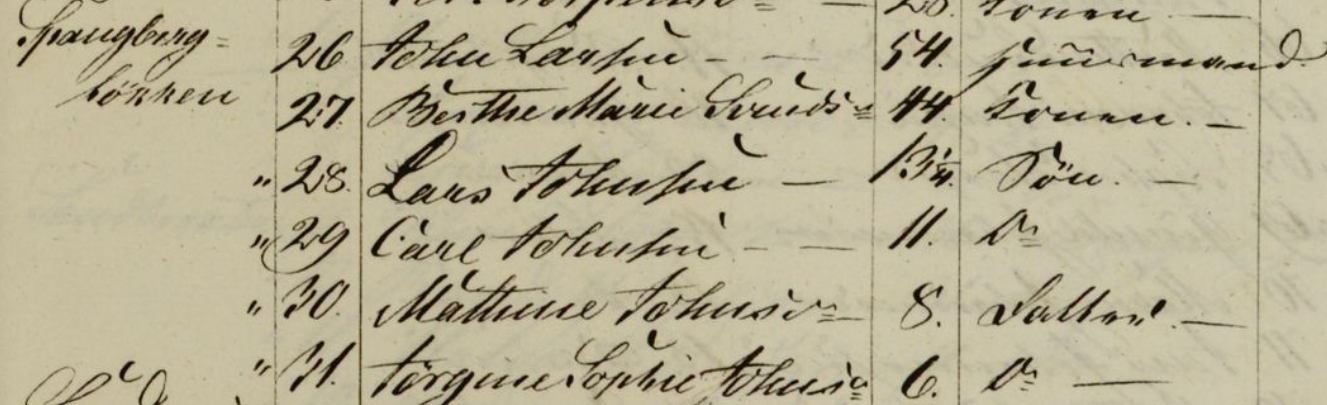 Konen —
Spangberg= 26 John Larsen - - 54. Huusmand.
løkken 27. Berthe Marie 44. Konen. —
" 28. Lars Johnsen — 13¼. Søn. —
" 29 Carl Johnsen - — 11. Do
" 30. Mathine Johnsdr — 8. Datter. —
" 31. Jørgine Sophie Johnsdr 6. Do —